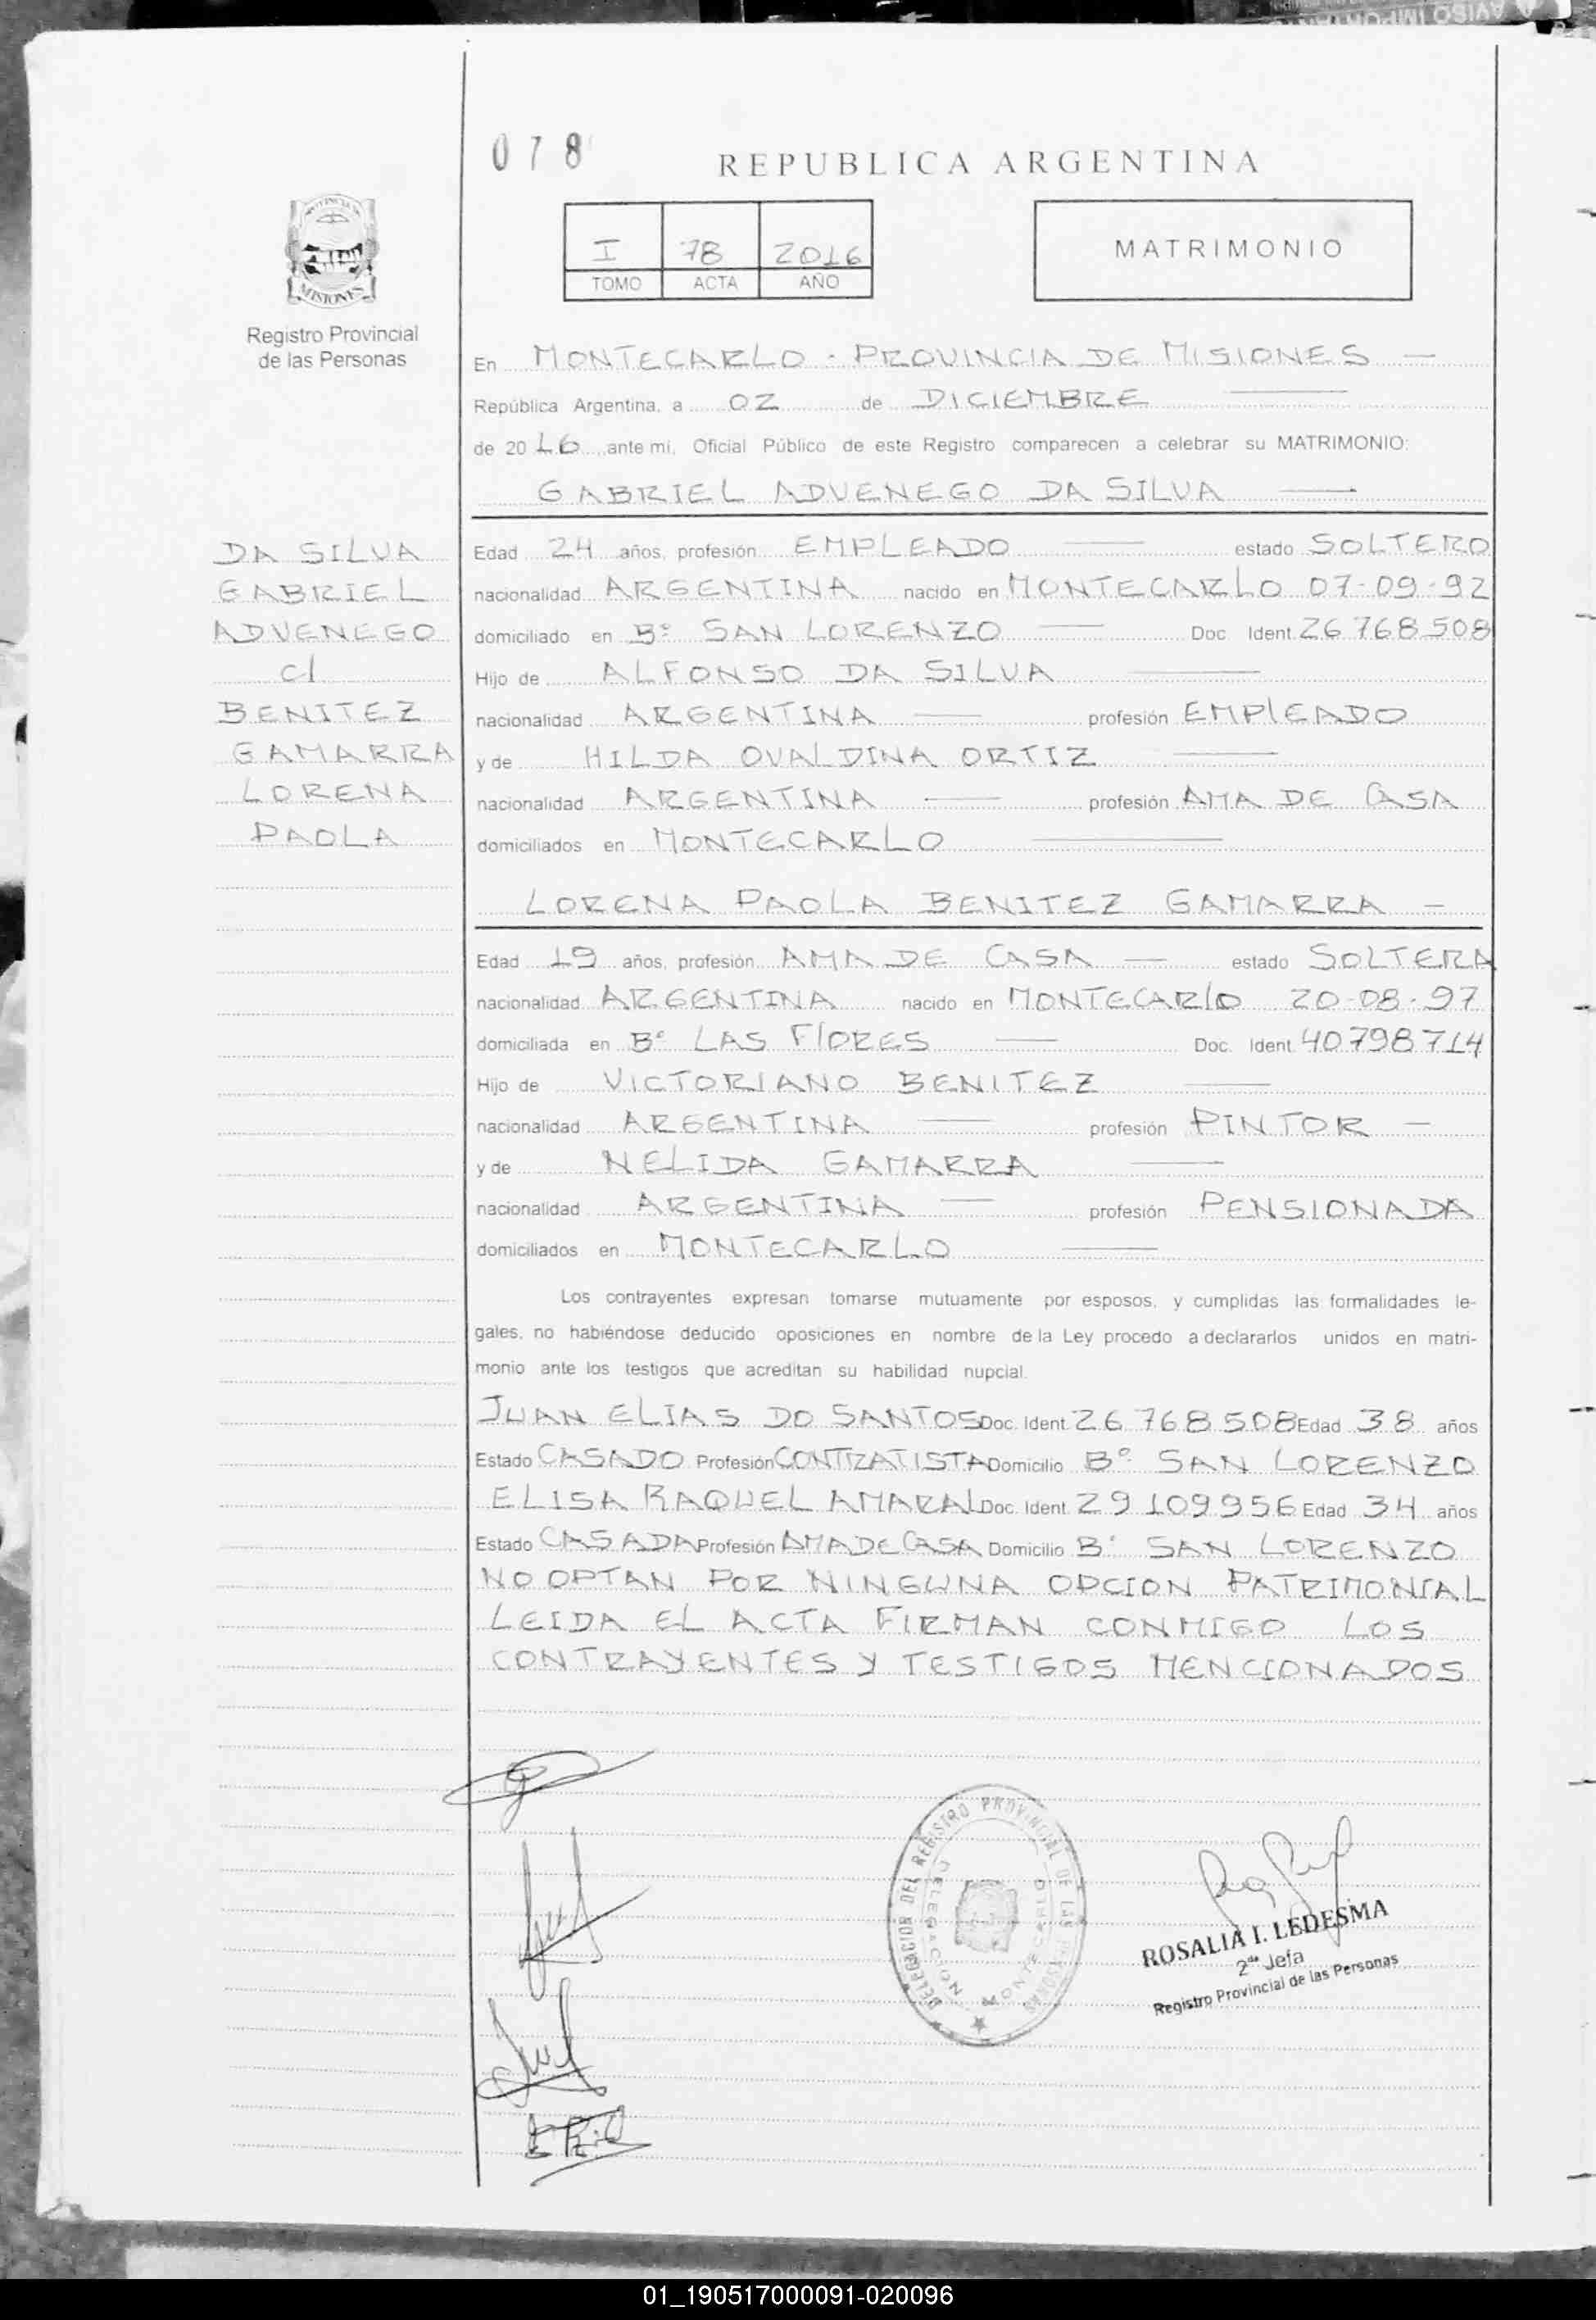 AVISO IMPORTANT
078
REPUBLICA ARGENTINA
I 78 2016
TOMO ACTA AÑO
MATRIMONIO
PROVINCIA DE
MISIONES
Registro Provincial
de las Personas
En MONTECARLO - PROVINCIA DE MISIONES —
República Argentina, a 02 de DICIEMBRE —
de 2016, ante mi, Oficial Público de este Registro comparecen a celebrar su MATRIMONIO:
GABRIEL ADVENEGO DA SILVA —
DA SILVA
GABRIEL
ADVENEGO
c/
BENITEZ
GAMARRA
LORENA
PAOLA
Edad 24 años, profesión EMPLEADO — estado SOLTERO
nacionalidad ARGENTINA nacido en MONTECARLO 07-09-92
domiciliado en Bº SAN LORENZO — Doc Ident. 26 768 508
Hijo de ALFONSO DA SILVA —
nacionalidad ARGENTINA — profesión EMPLEADO
y de HILDA OVALDINA ORTIZ —
nacionalidad ARGENTINA — profesión AMA DE CASA
domiciliados en MONTECARLO —
LORENA PAOLA BENITEZ GAMARRA —
Edad 19 años, profesión AMA DE CASA — estado SOLTERA
nacionalidad ARGENTINA nacido en MONTECARLO 20-08-97
domiciliada en Bº LAS FLORES — Doc. Ident. 40798714
Hijo de VICTORIANO BENITEZ —
nacionalidad ARGENTINA — profesión PINTOR —
y de NELIDA GAMARRA —
nacionalidad ARGENTINA — profesión PENSIONADA
domiciliados en MONTECARLO —
Los contrayentes expresan tomarse mutuamente por esposos, y cumplidas las formalidades le-
gales, no habiéndose deducido oposiciones en nombre de la Ley procedo a declararlos unidos en matri-
monio ante los testigos que acreditan su habilidad nupcial.
JUAN ELIAS DO SANTOS Doc. Ident. 26 768 508 Edad 38 años
Estado CASADO Profesión CONTRATISTA Domicilio Bº SAN LORENZO
ELISA RAQUEL AMARAL Doc. Ident. 29 109956 Edad 34 años
Estado CASADA Profesión AMA DE CASA Domicilio Bº SAN LORENZO
NO OPTAN POR NINGUNA OPCION PATRIMONIAL
LEIDA EL ACTA FIRMAN CONMIGO LOS
CONTRAYENTES Y TESTIGOS MENCIONADOS
DELEGACION DEL REGISTRO PROVINCIAL DE LAS PERSONAS
DELEGACION MONTECARLO
ROSALIA I. LEDESMA
2da Jefa
Registro Provincial de las Personas
01_190517000091-020096